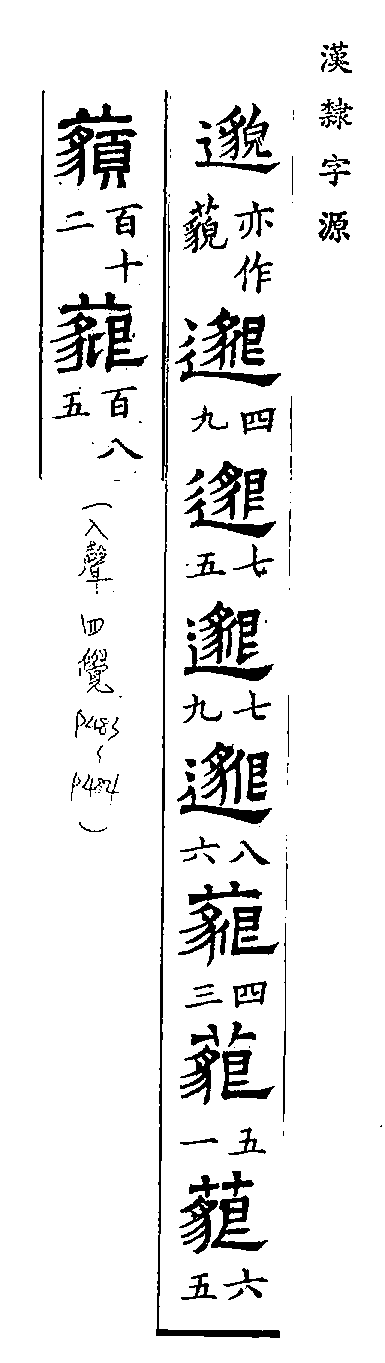 漢隸字源
邈亦作藐邈四九邈七五邈七九邈八六藐四三藐五一藐六五
藐百十二藐百八五
（入聲四覺P483～P484）